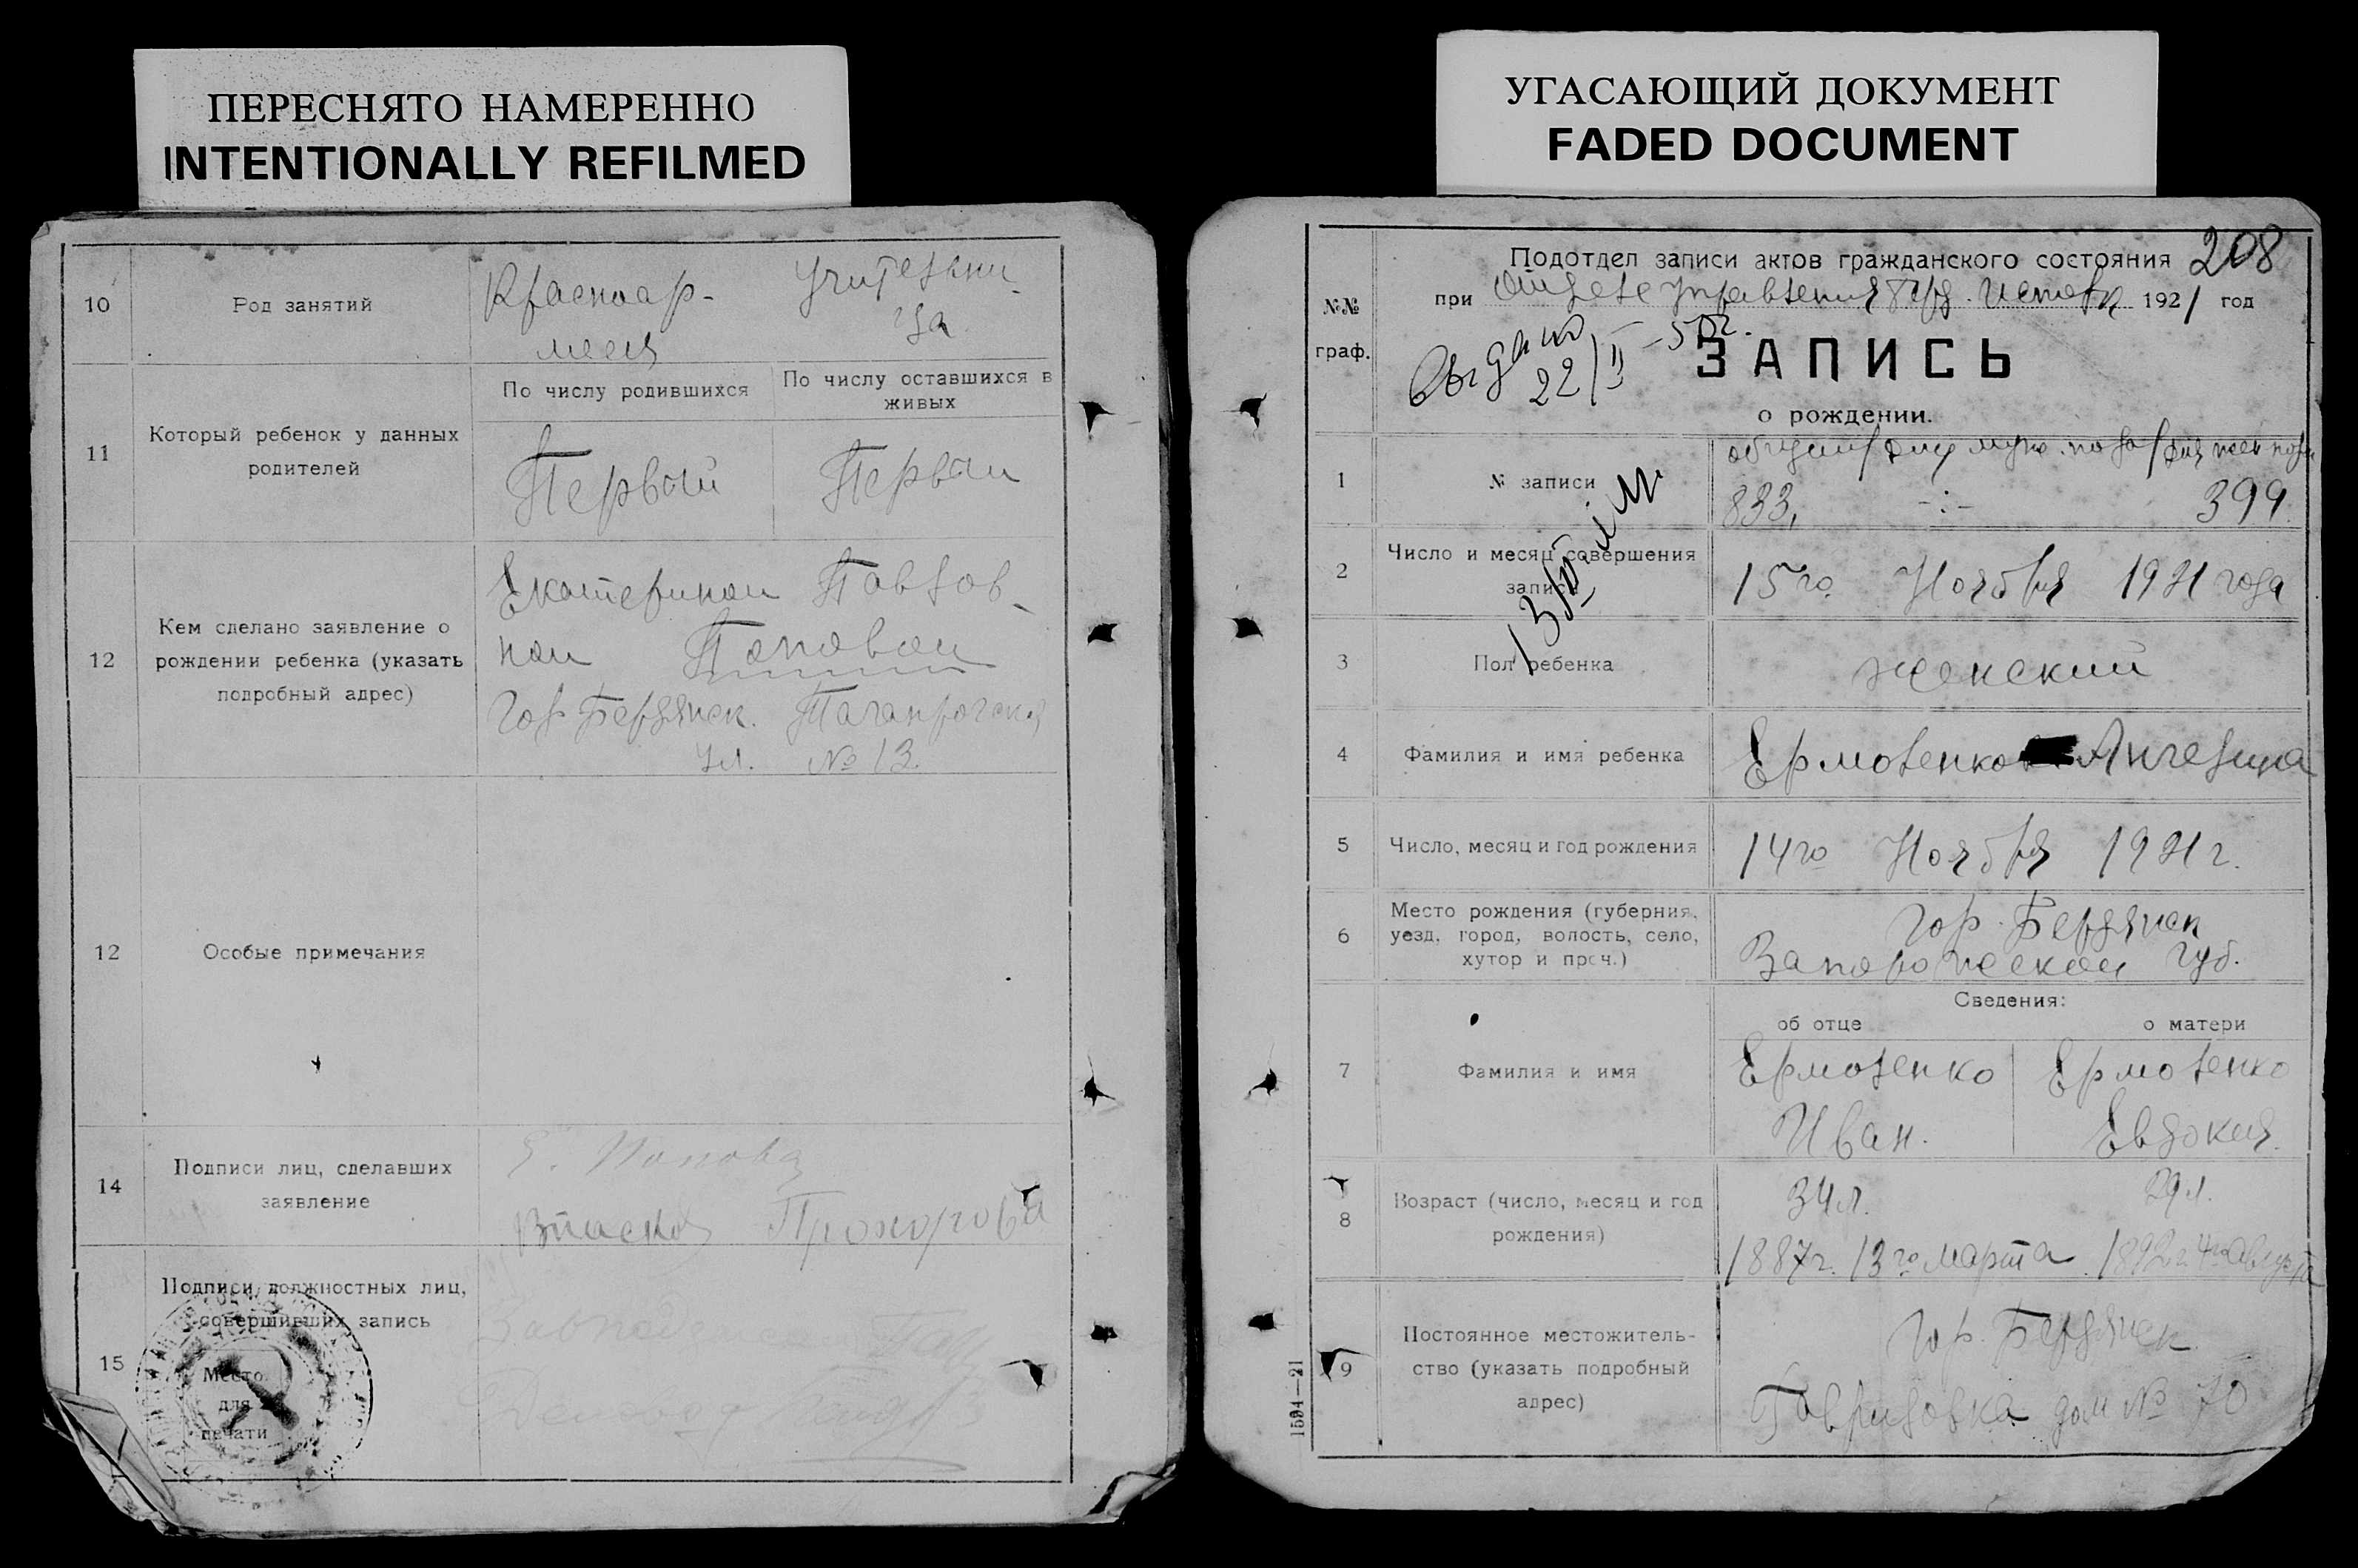 ПЕРЕСНЯТО НАМЕРЕННО
INTENTIONALLY REFILMED
10
Род занятий
Красноар-
меец
учительни-
ца
11
Который ребенок у данных
родителей
По числу родившихся
По числу оставшихся в
живых
Первый
Первый
12
Кем сделано заявление о
рождении ребенка (указать
подробный адрес)
Екатериной Павлов-
ной Поповой
Гор. Бердянск. Таганрогская
ул. № 13.
12
Особые примечания
14
Подписи лиц, сделавших
заявление
Е. Попова
Прохорова
15
Подписи должностных лиц,
совершивших запись
Место
для
печати
УГАСАЮЩИЙ ДОКУМЕНТ
FADED DOCUMENT
208
№№
граф.
Подотдел записи актов гражданского состояния
при Отделе Управления Берд. Исполк. 1921 год
Выдано
22/II-50г.
ЗАПИСЬ
о рождении.
1
№ записи
общий/для муж. пола/для жен пола
833, -:- 399
2
Число и месяц совершения
записи
15го Ноября 1921 года
3
Пол ребенка
женский
4
Фамилия и имя ребенка
Ермоленко Ангелина
5
Число, месяц и год рождения
14го Ноября 1921 г.
6
Место рождения (губерния,
уезд, город, волость, село,
хутор и проч.)
Гор. Бердянск
Запорожской Губ.
Сведения:
об отце
о матери
7
Фамилия и имя
Ермоленко
Иван.
Ермоленко
Евдокия.
8
Возраст (число, месяц и год
рождения)
34 л.
1887г. 13го марта
29 л.
1892г. 4го августа
9
Постоянное местожитель-
ство (указать подробный
адрес)
Гор. Бердянск
Гавриловка дом № 70
1594—21